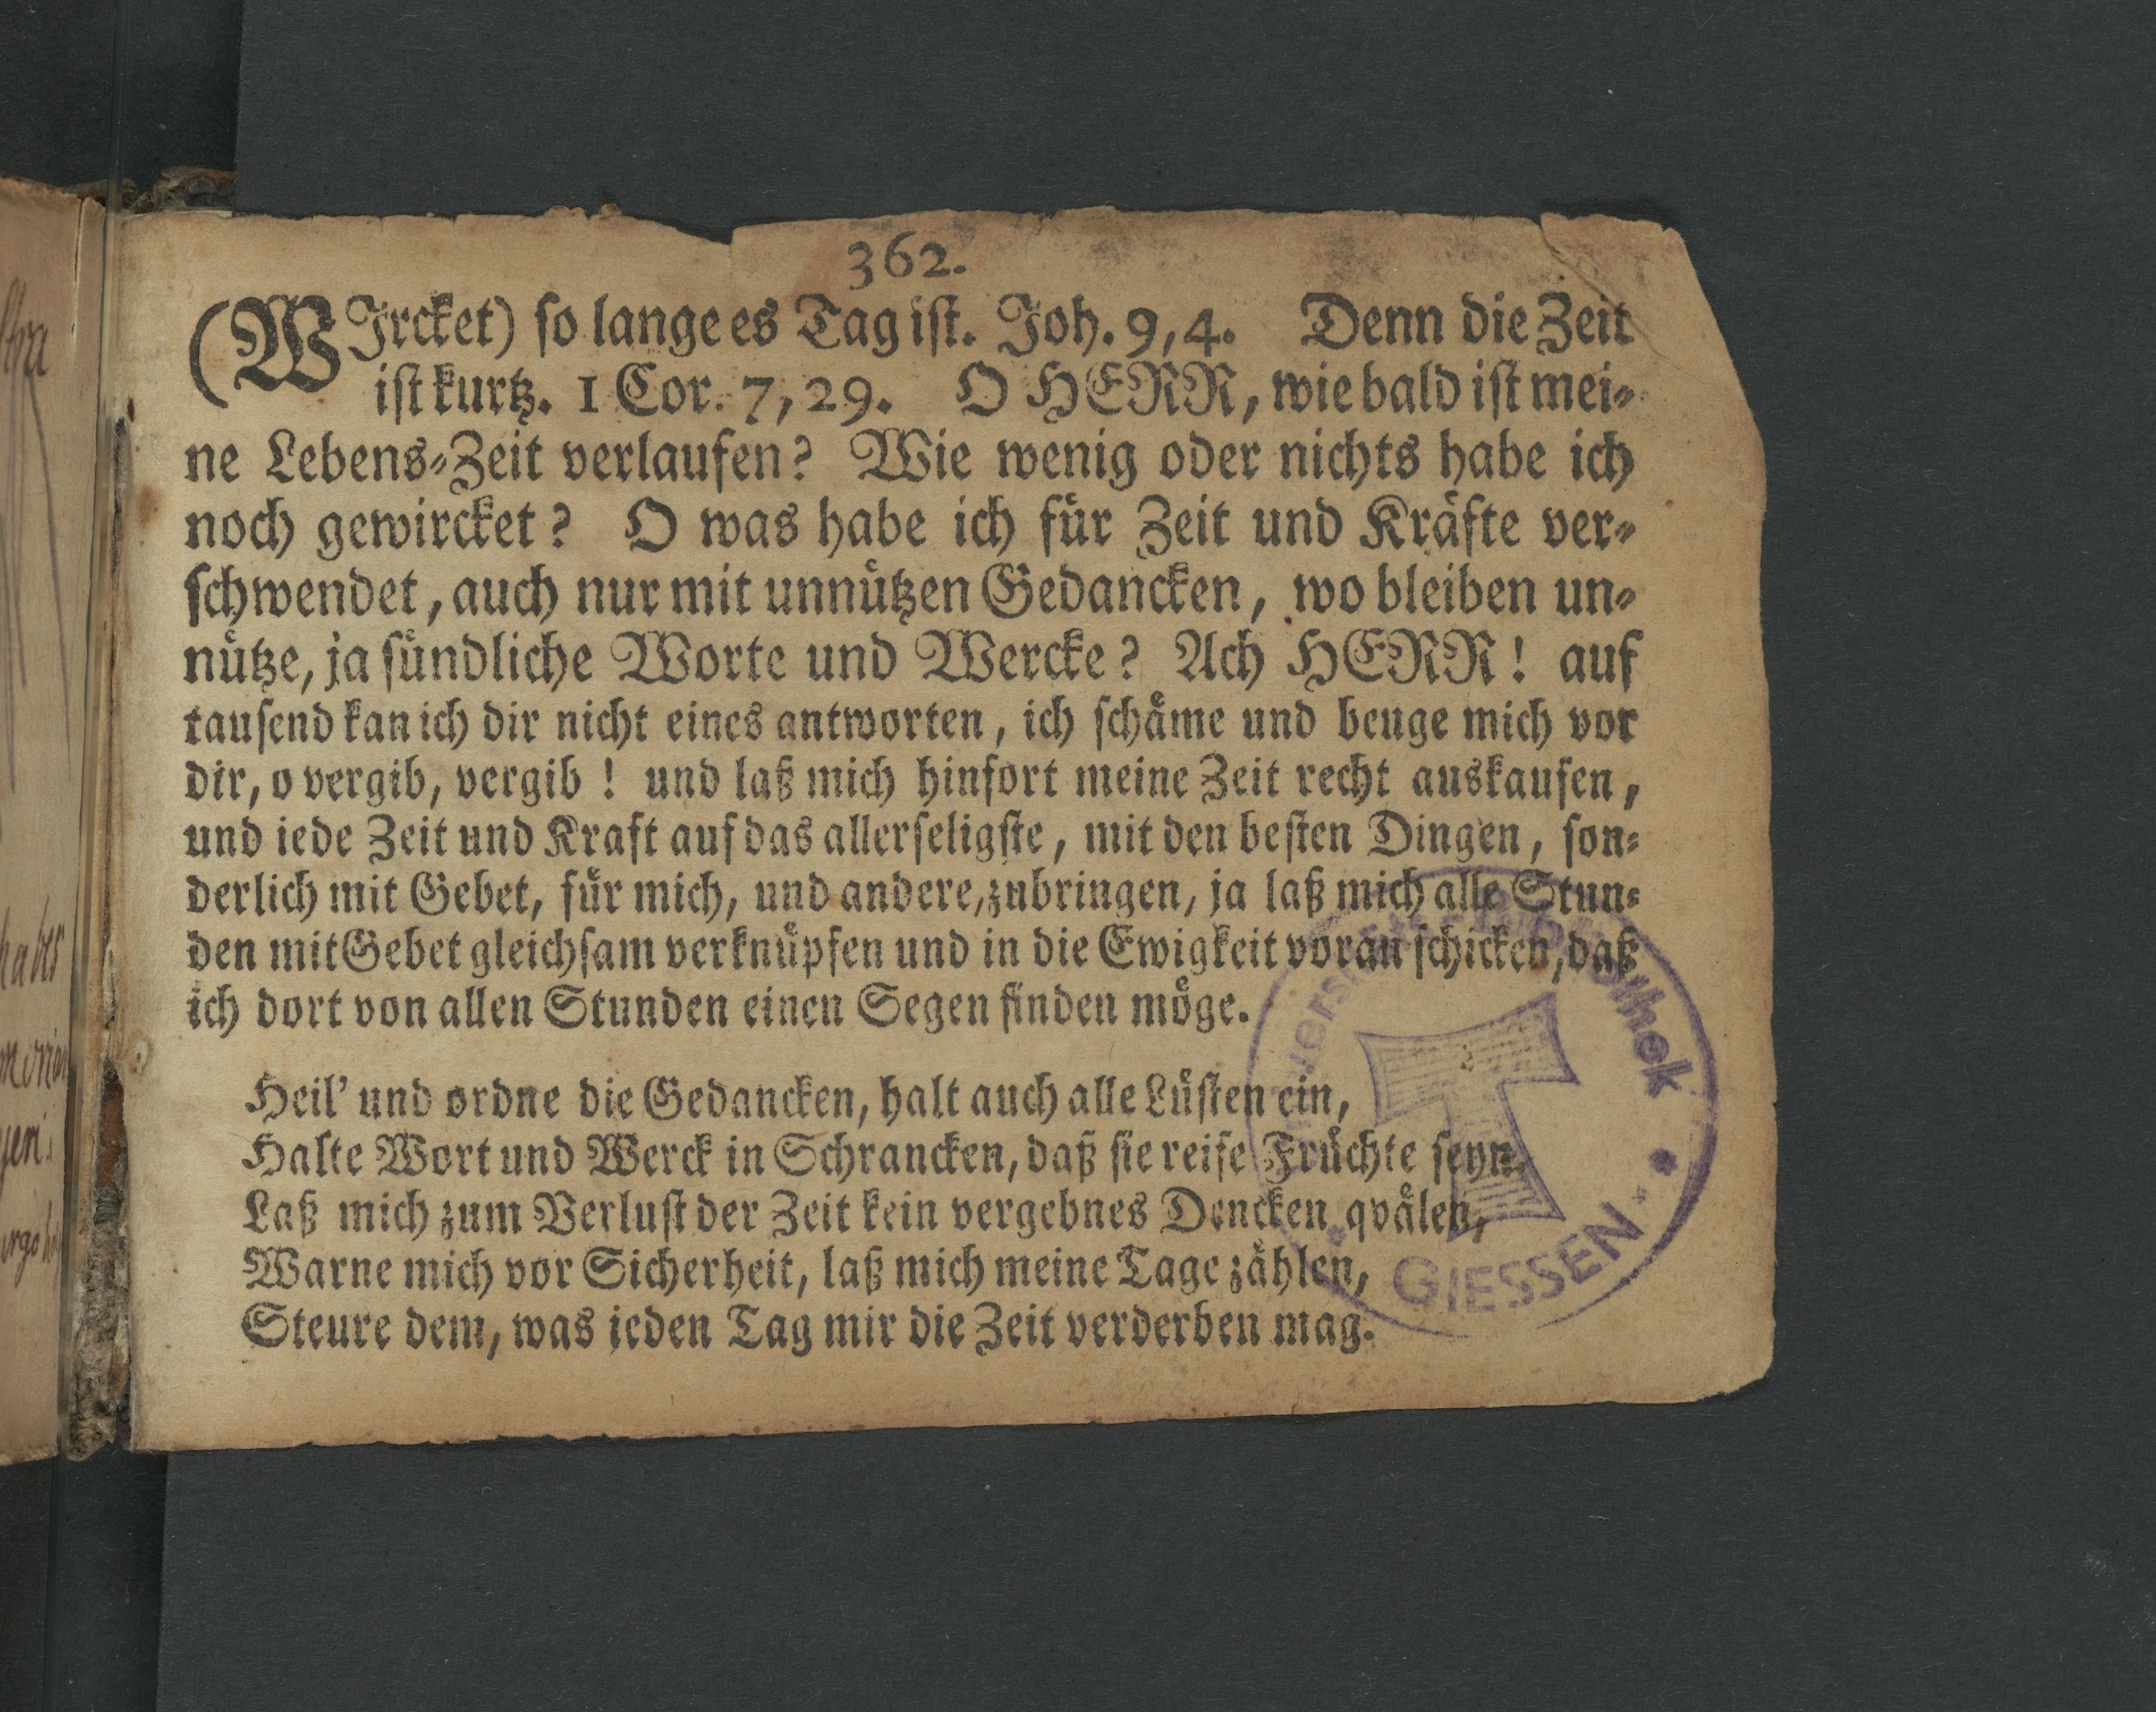 362.
(WIrcket) so lange es Tag ist. Joh. 9, 4. Denn die Zeit
ist kurtz. 1 Cor. 7, 29. O HERR, wie bald ist mei-
ne Lebens-Zeit verlaufen? Wie wenig oder nichts habe ich
noch gewircket? O was habe ich für Zeit und Kräfte ver-
schwendet, auch nur mit unnützen Gedancken, wo bleiben un-
nütze, ja sündliche Worte und Wercke? Ach HERR! auf
tausend kan ich dir nicht eines antworten, ich schäme und beuge mich vor
dir, o vergib, vergib! und laß mich hinfort meine Zeit recht auskaufen,
und iede Zeit und Kraft auf das allerseligste, mit den besten Dingen, son-
derlich mit Gebet, für mich, und andere, zubringen, ja laß mich alle Stun-
den mit Gebet gleichsam verknüpfen und in die Ewigkeit voran schicken, daß
ich dort von allen Stunden einen Segen finden möge.
Heil' und ordne die Gedancken, halt auch alle Lüsten ein,
Halte Wort und Werck in Schrancken, daß sie reife Früchte seyn,
Laß mich zum Verlust der Zeit kein vergebnes Dencken qvälen,
Warne mich vor Sicherheit, laß mich meine Tage zählen,
Steure dem, was ieden Tag mir die Zeit verderben mag.
GIESSEN
habes